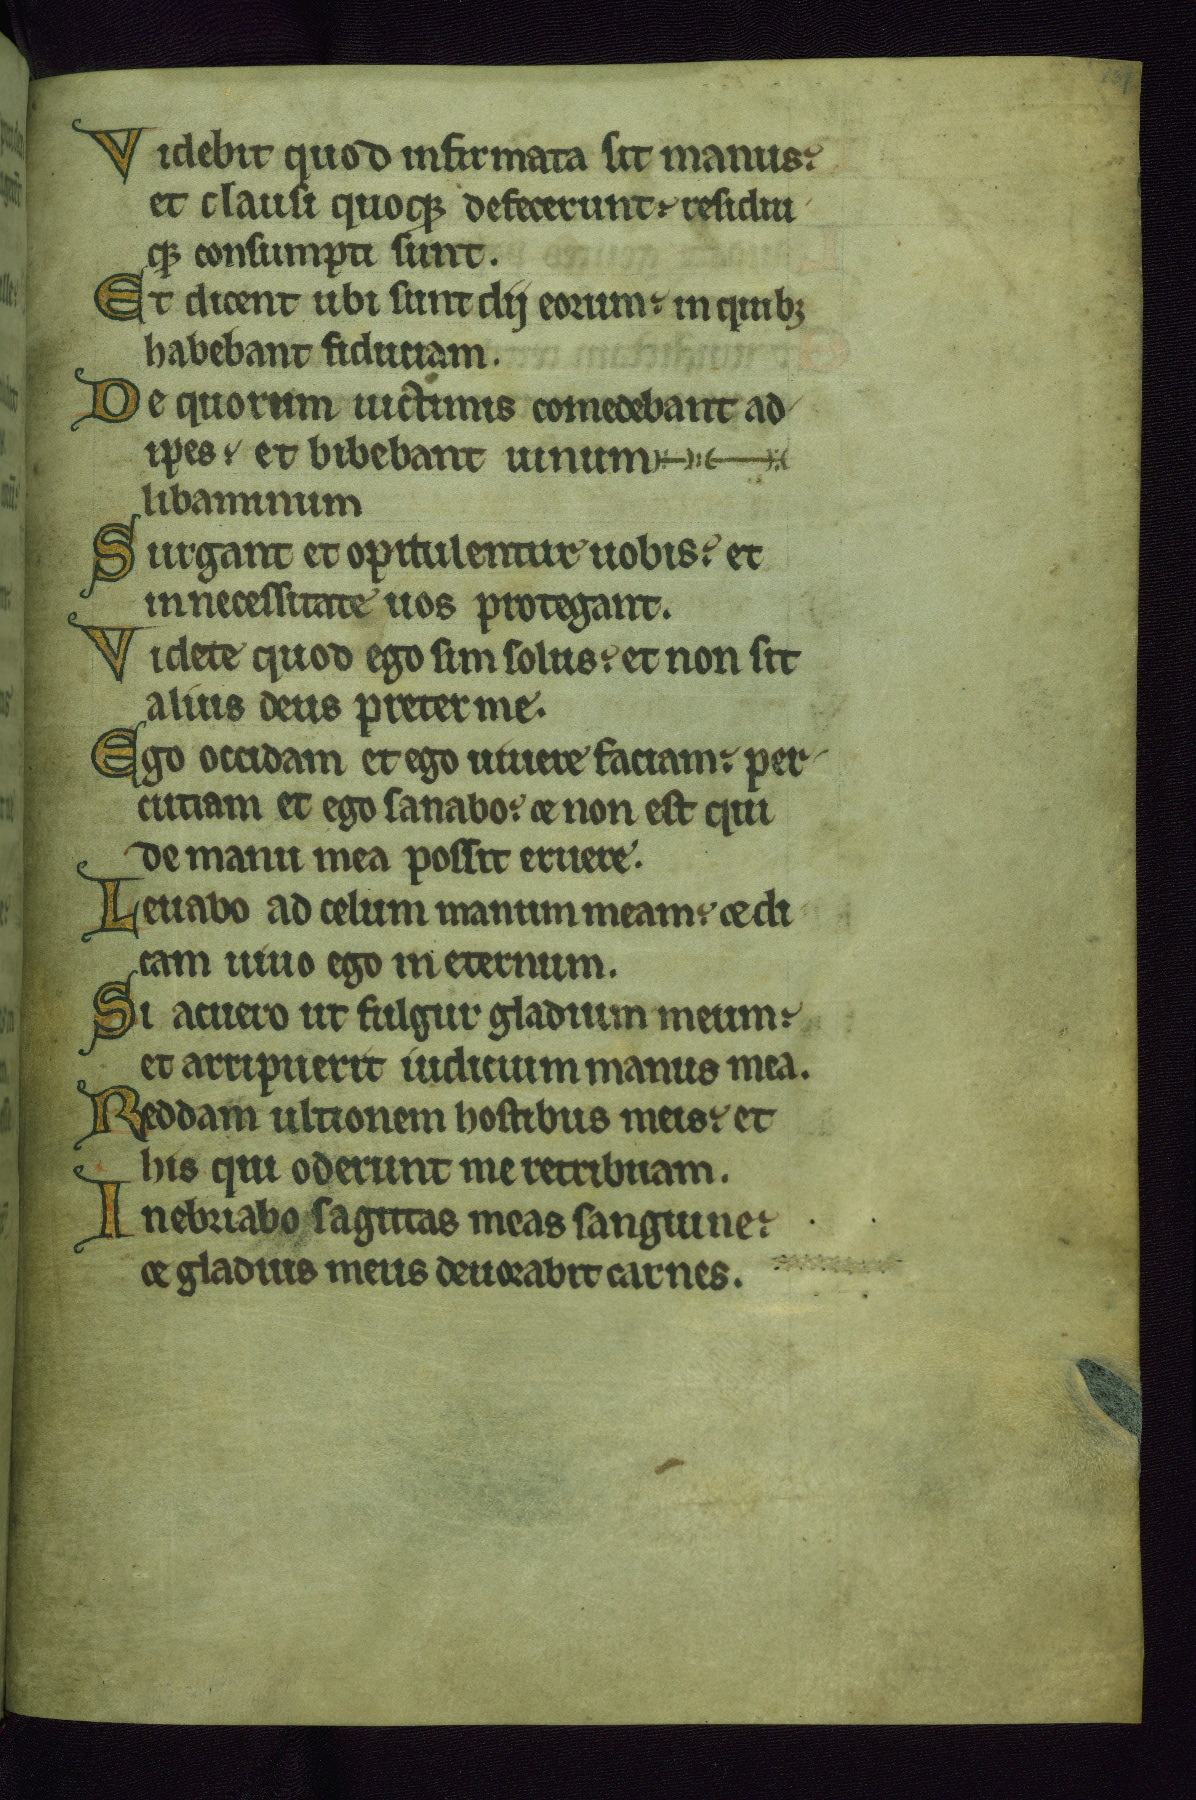 Videbit quod infirmata sit manus:
et clausi quoqꝫ defecerunt: residui
qꝫ consumpti sunt.
Et dicent ubi sunt dij eorum: in quibꝫ
habebant fiduciam.
De quorum uictimis comedebant ad
ipes: et bibebant uinum
libaminum
Surgant et opitulentur uobis: et
in necessitate uos protegant.
Videte quod ego sim solus: et non sit
alius deus preter me.
Ego occidam et ego uiuere faciam: per
cutiam et ego sanabo: & non est qui
de manu mea possit eruere.
Leuabo ad celum manum meam: & di
cam uiuo ego in eternum.
Si acuero ut fulgur gladium meum:
et arripuerit iudicium manus mea.
Reddam ultionem hostibus meis: et
his qui oderunt me retribuam.
Inebriabo sagittas meas sanguine:
& gladius meus deuorabit carnes.